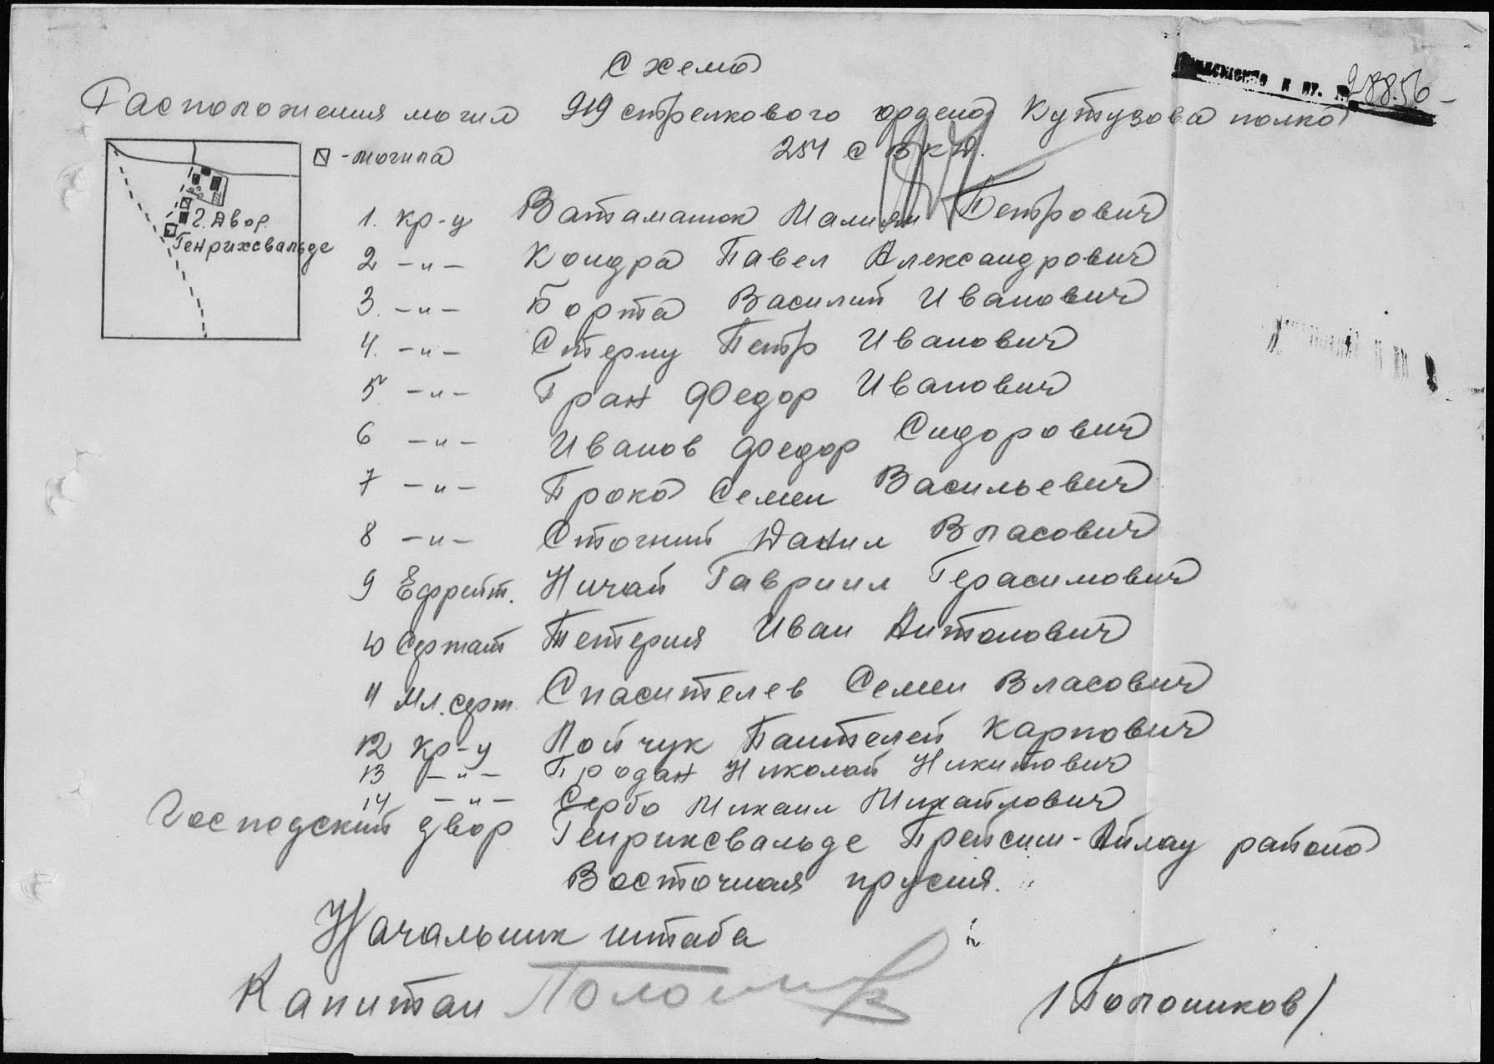 Схема
Расположения могил 929 стрелкового ордена Кутузова полка
254 С В К Д.
28856
- могила
г. Двор.
Генрихсвальде
1. кр-ц Ватаманюк Петрович
2 -"- Кондра Павел Александрович
3. -"- Борта Василий Иванович
4. -"- Стерну Петр Иванович
5. -"- Гран Федор Иванович
6 -"- Иванов Федор Сидорович
7 -"- Прока Семен Васильевич
8 -"- Стогний Данил Власович
9 Ефрейт. Ничай Гавриил Герасимович
10 Сержант Тетеря Иван Антонович
11 Мл. серж. Спасителев Семен Власович
12 кр-ц Пойчук Пантелей Карпович
13 -"- Продан Николай Никитович
14 -"- Сербо Михаил Михайлович
Господский двор Генрихсвальде Прейсиш-Айлау района
Восточная пруссия.
Начальник штаба
Капитан /Полошиков/